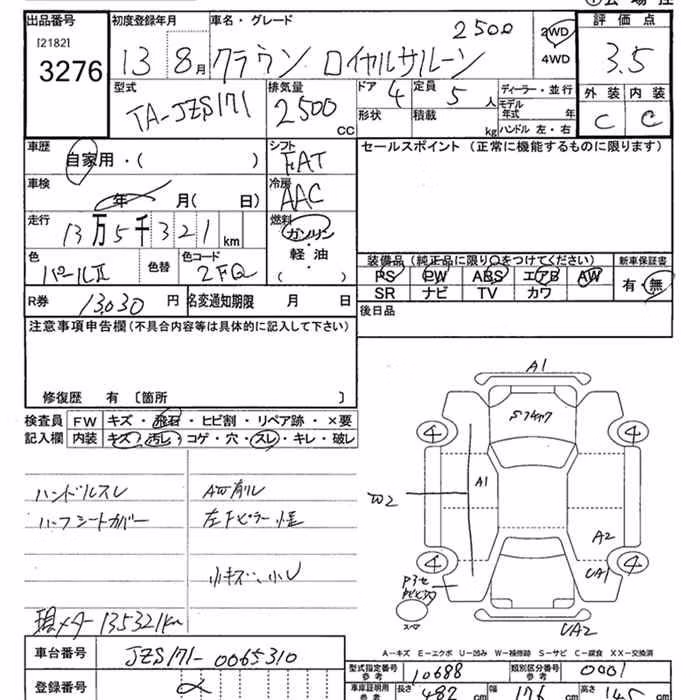 出品番号
[2182]
3276
初度登録年月
13 8月
車名・グレード
クラウン ロイヤルサルーン 2500
2WD
4WD
評価点
3.5
型式
TA-JZS171
排気量
2500 CC
ドア 4
定員 5人
形状
積載 kg
ディーラー・並行
モデル年式 年
ハンドル 左・右
外装 内装
C C
車歴
自家用・( )
シフト
FAT
セールスポイント (正常に機能するものに限ります)
車検
年 月( 日)
冷房
AAC
走行
13万5千321km
燃料
ガソリン
軽・油
( )
色
パールII
色替
色コード
2FQ
装備品 (純正品に限り○をつけてください)
新車保証書
PS PW ABS エアB AW
SR ナビ TV カワ
有・無
R券 13,030 円
名変通知期限 月 日
後日品
注意事項申告欄(不具合内容等は具体的に記入して下さい)
修復歴 有 〔箇所 〕
検査員記入欄
FW キズ・飛石・ヒビ割・リペア跡・×要
内装 キズ・汚レ・コゲ・穴・スレ・キレ・破レ
ハンドルスレ
ハーフシートカバー
AW削レ
小キズ、小U
現メーター135321km
A1
4 4
A1
W2
A2
UA1
4 4
スペア
UA2
A-キズ E-エクボ U-凹み W-補修跡 S-サビ C-腐食 XX-交換済
車台番号
JZS171-0065310
登録番号
型式指定番号 参考
10688
類別区分番号 参考
0001
車庫証明用 参考
長さ 482 cm
幅 176 cm
高さ 145 cm